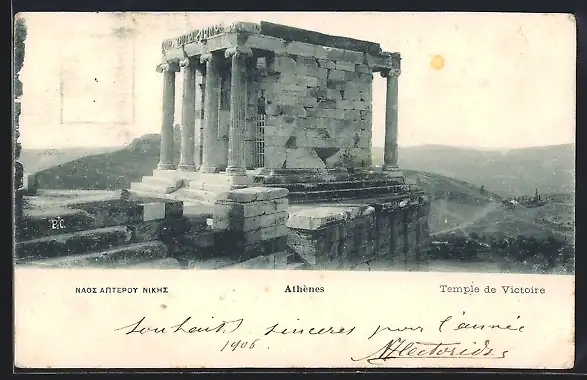 P.C.
ΝΑΟΣ ΑΠΤΕΡΟΥ ΝΙΚΗΣ
Athènes
Temple de Victoire
Souhaits sincères pour l'année
1906